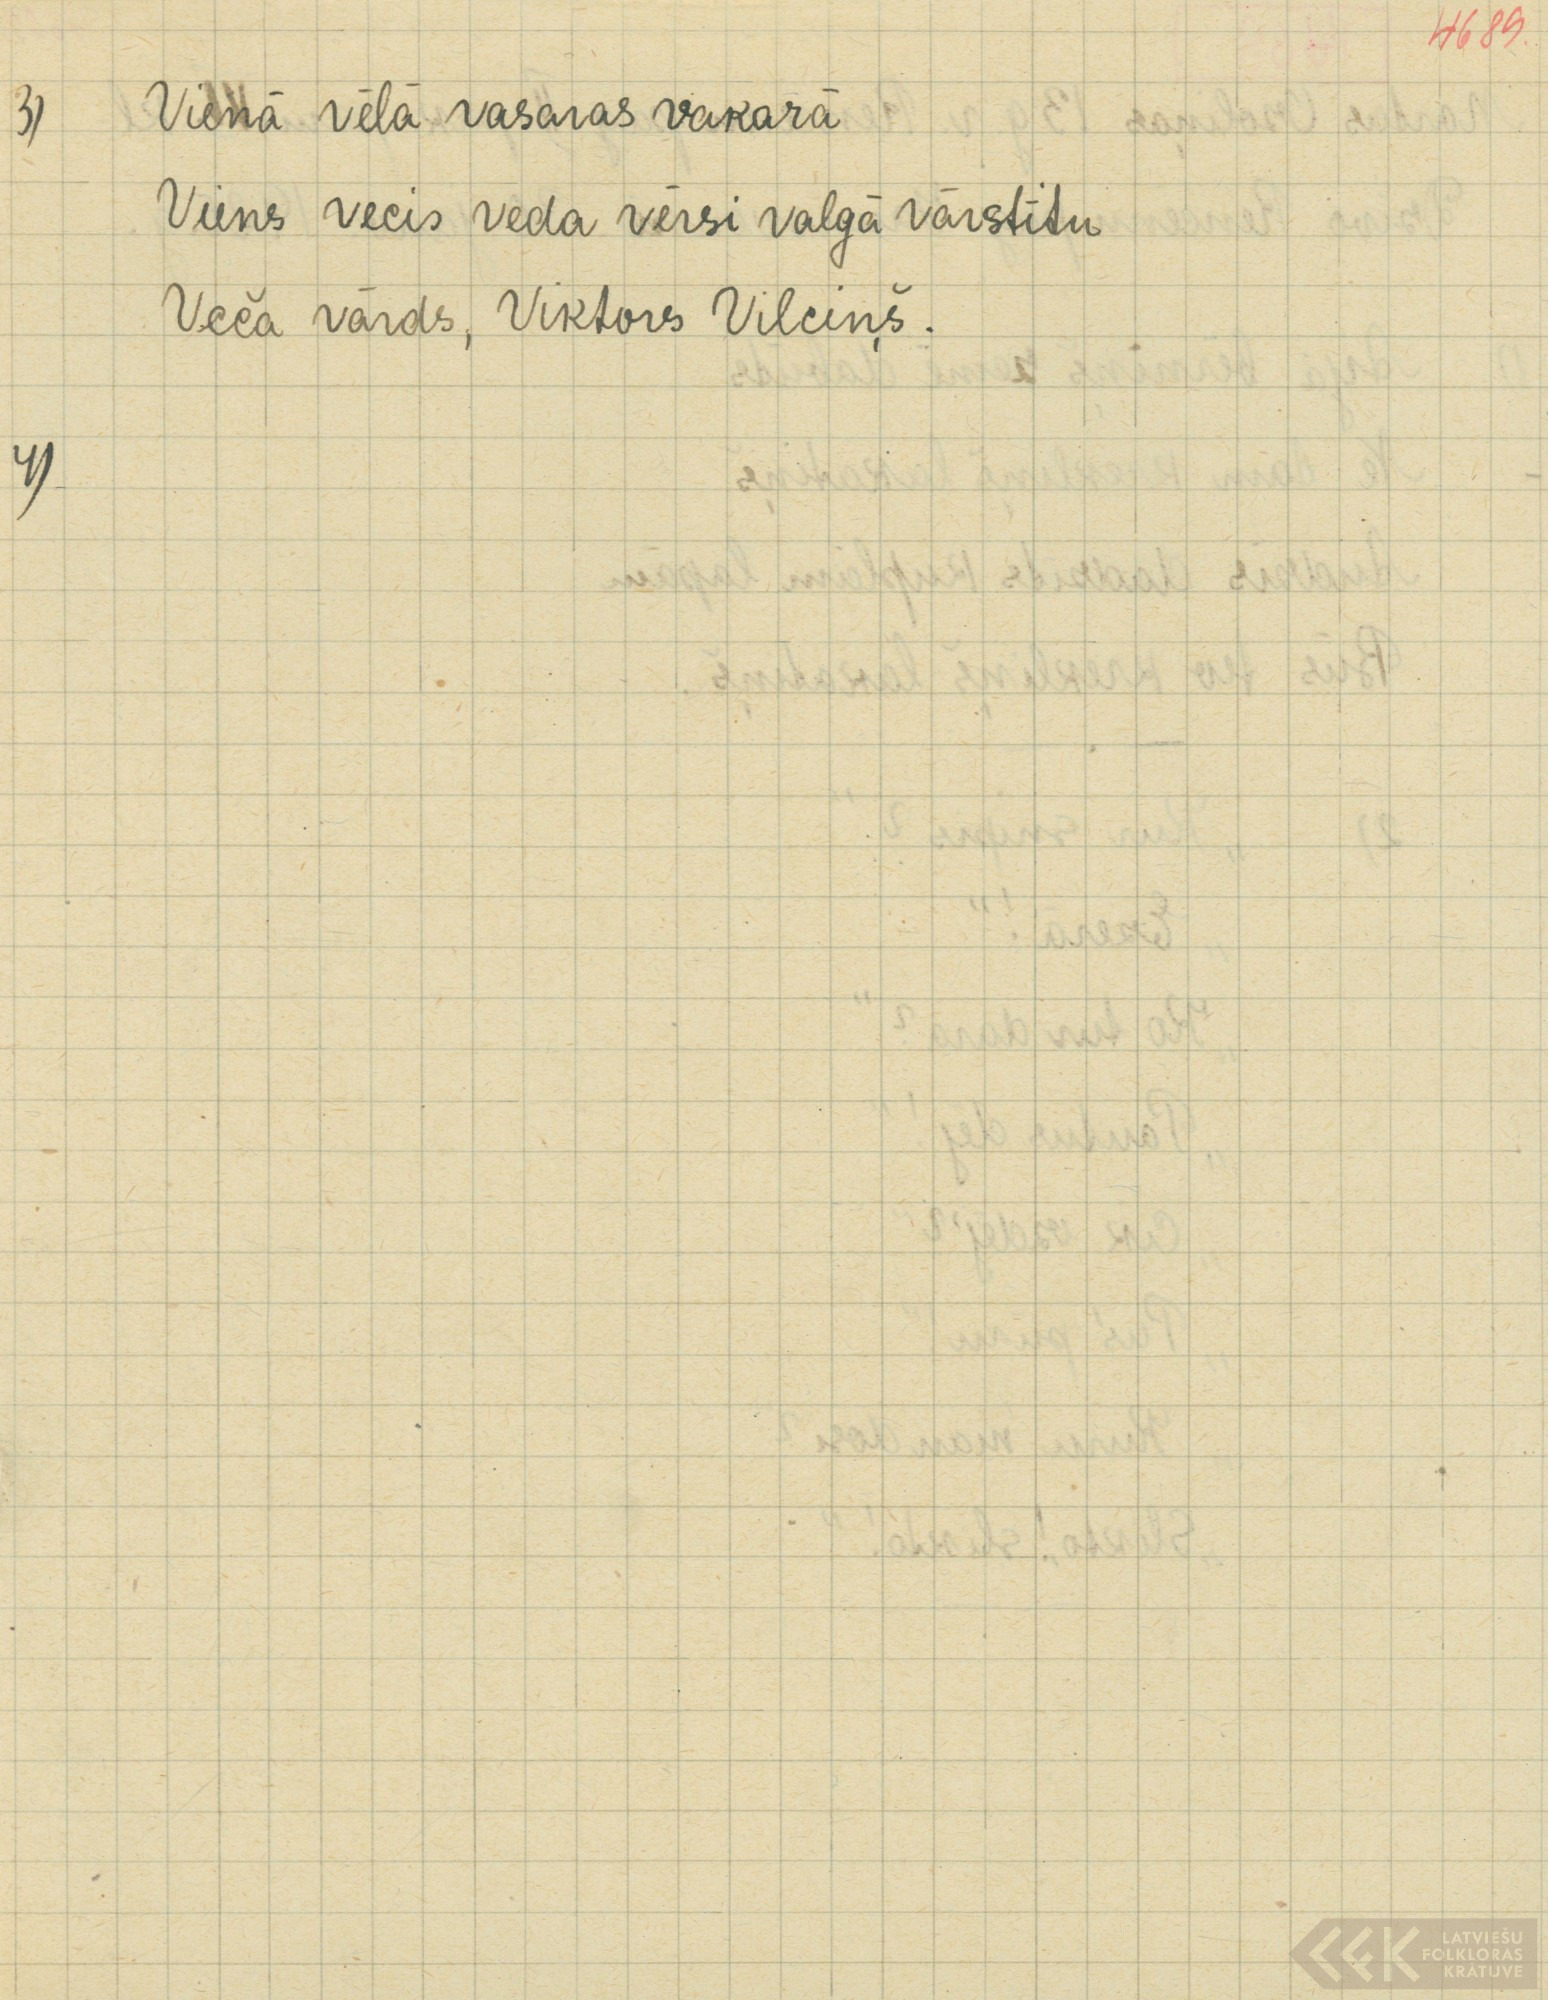 4689.
3) Vienā vēlā vasaras vakarā
Viens vecis veda vērsi valgā vārstītu
Veča vārds, Viktors Vilciņš.
4)
LATVIEŠU
FOLKLORAS
KRĀTUVE